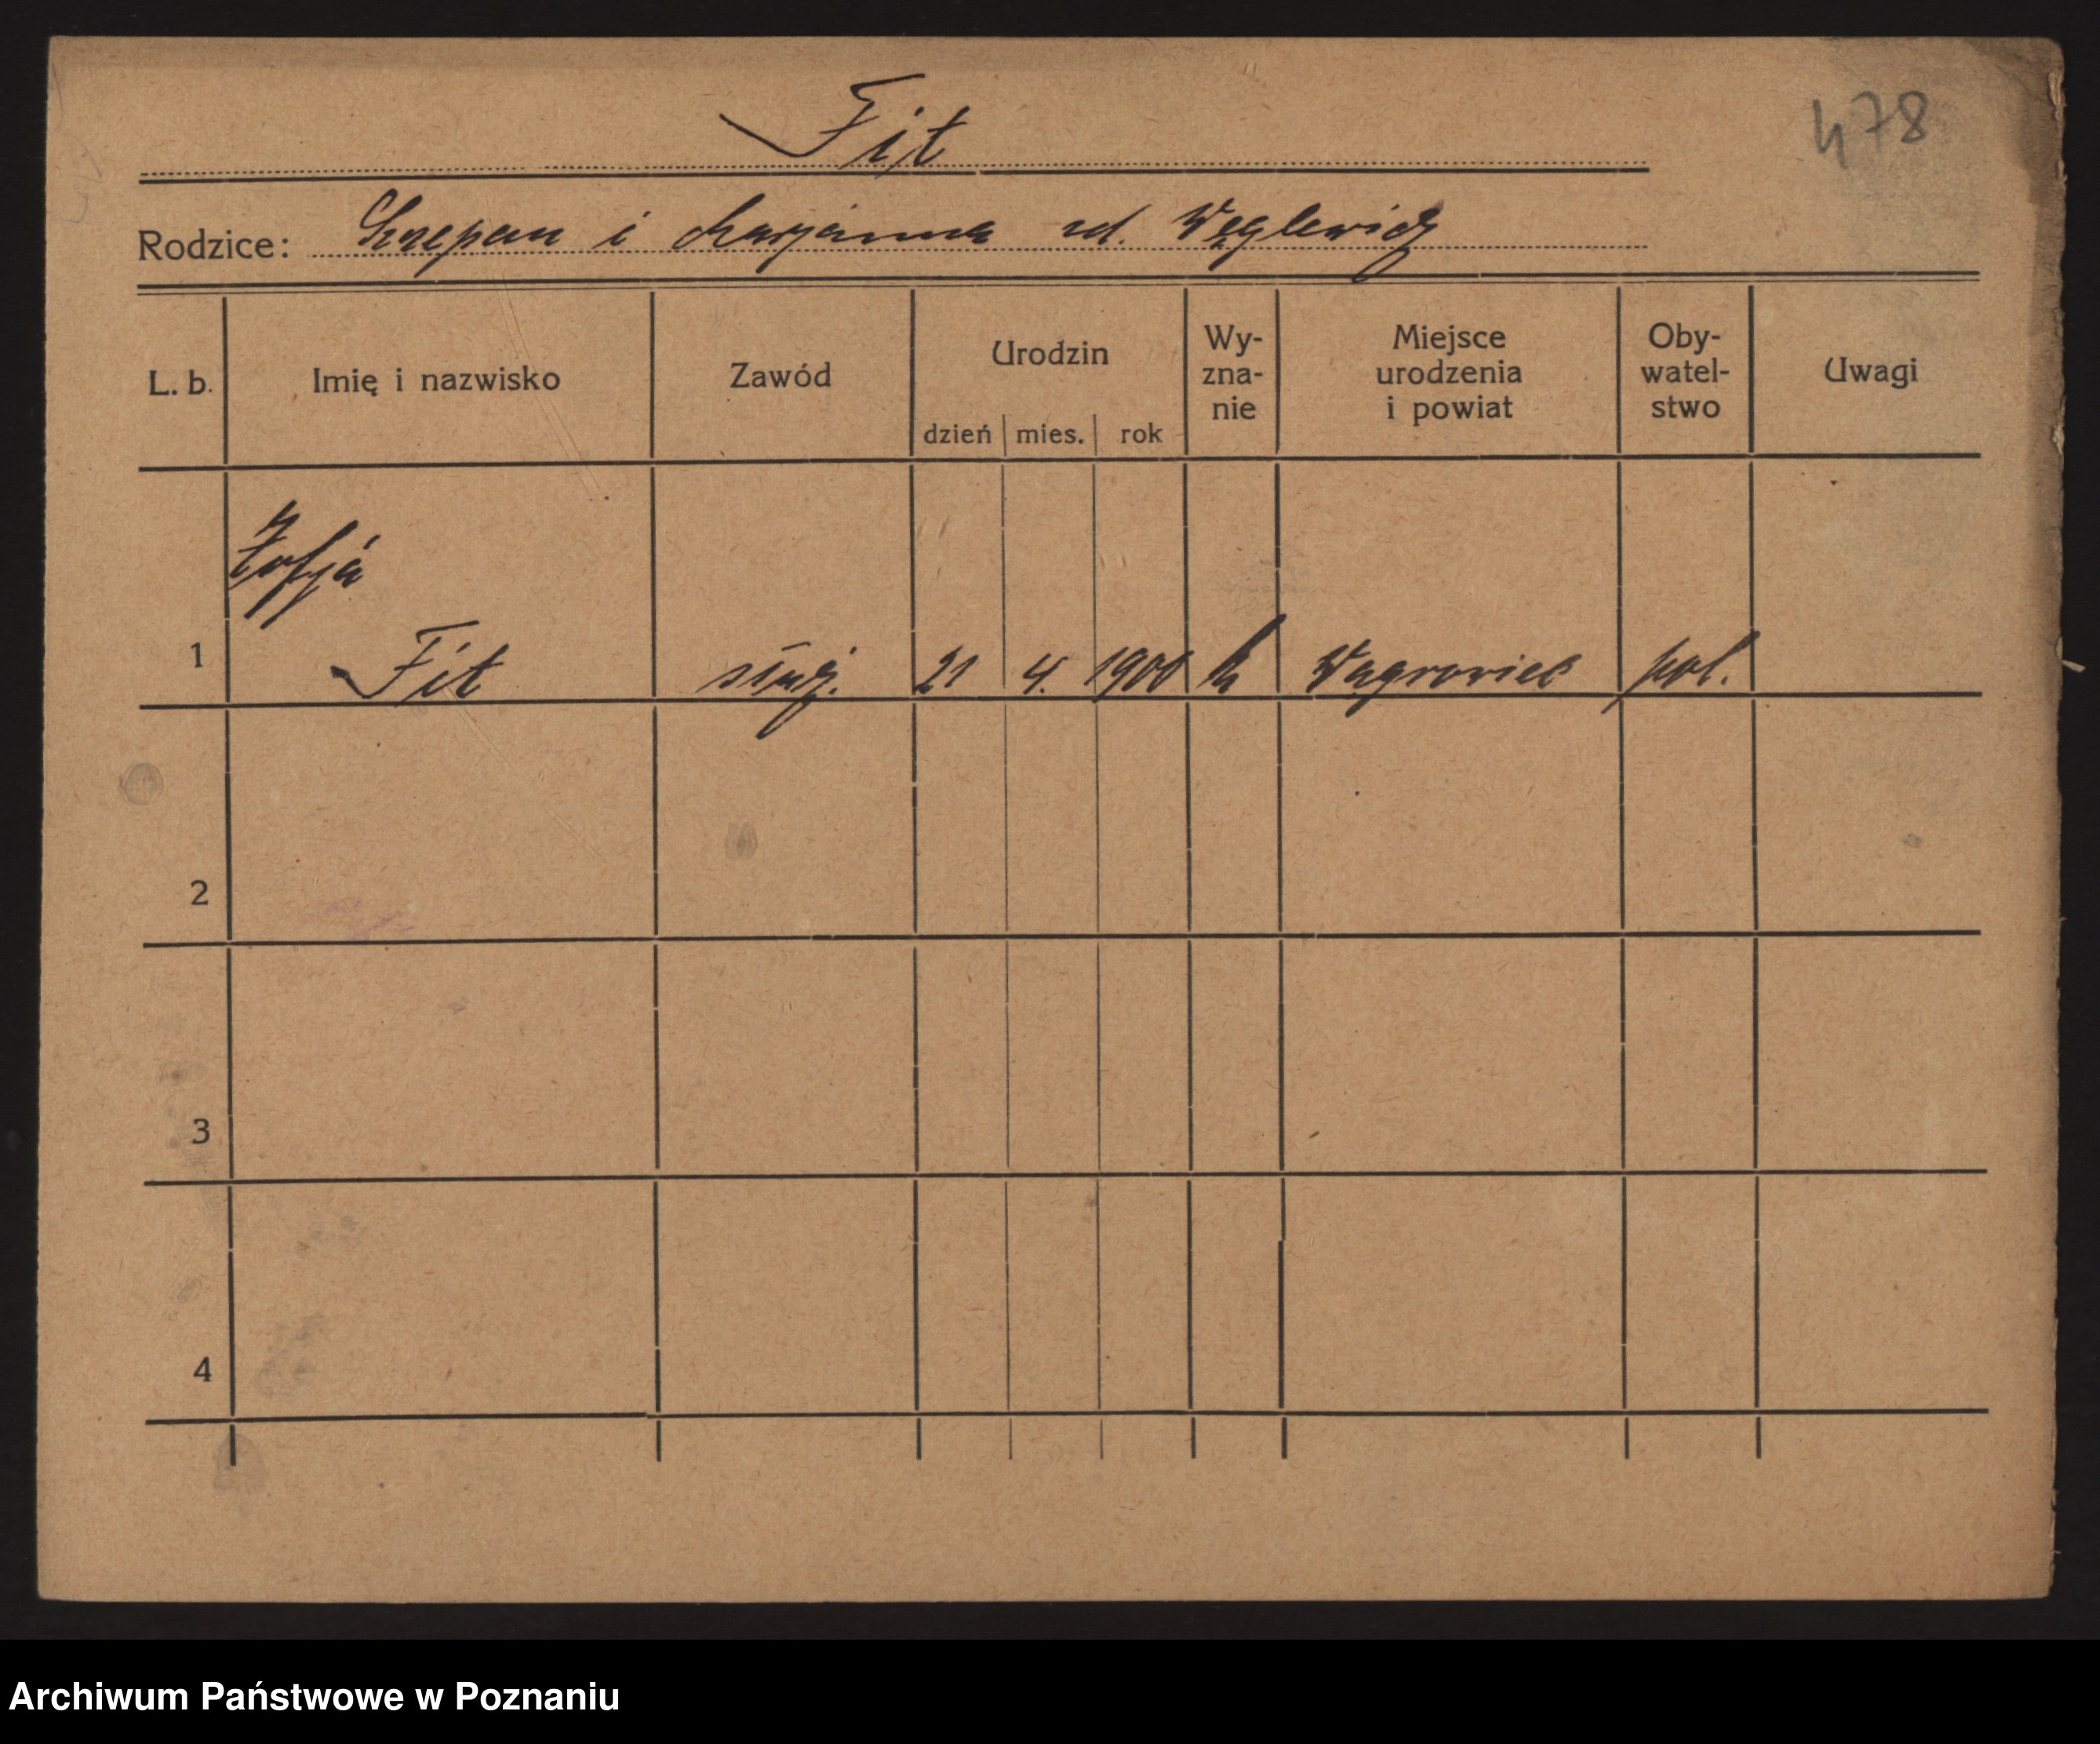 Fit
478
Rodzice: Szczepan i Marjanna zd. Węglewicz
L. b. Imię i nazwisko Zawód Urodzin dzień mies. rok Wy- zna- nie Miejsce urodzenia i powiat Oby- watel- stwo Uwagi
Zofja
1 Fit służ. 21 4. 1900 k Wągrowiec pol.
2
3
4
Archiwum Państwowe w Poznaniu